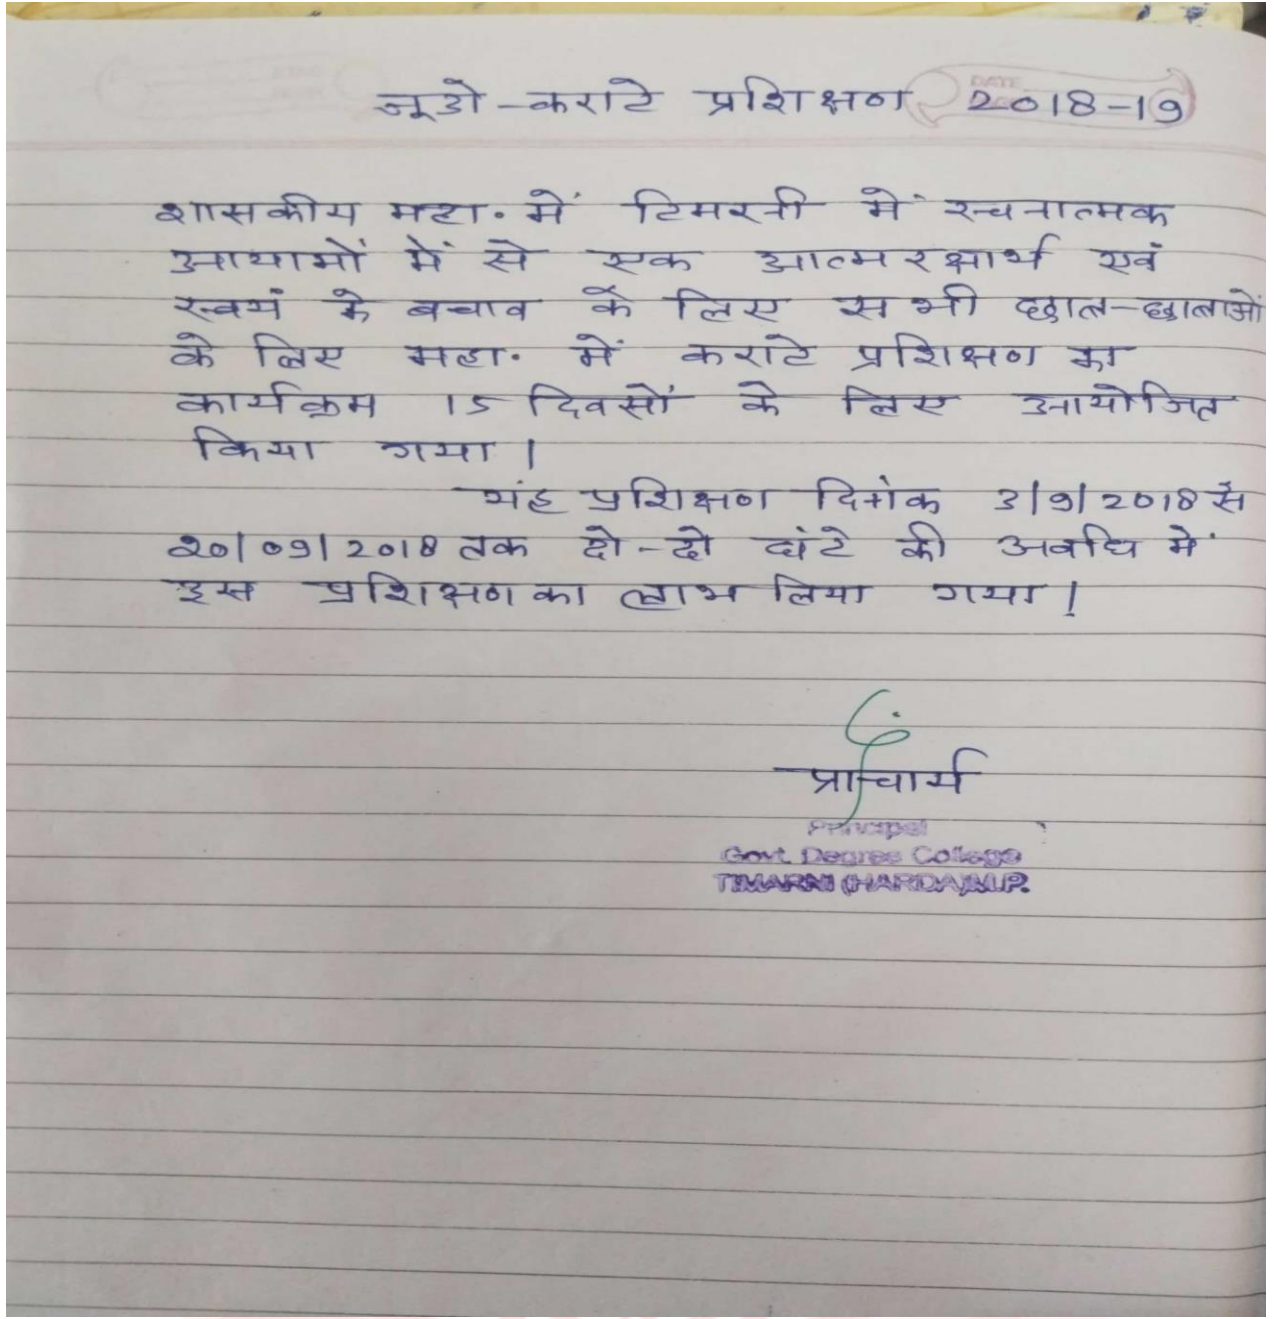 जूडो-कराटे प्रशिक्षण 2018-19
शासकीय महा. में टिमरनी में रचनात्मक
आयामों में से एक आत्मरक्षार्थ एवं
स्वयं के बचाव के लिए सभी छात्र-छात्राओं
के लिए महा. में कराटे प्रशिक्षण का
कार्यक्रम 15 दिवसों के लिए आयोजित
किया गया।
यंह प्रशिक्षण दिनांक 3/9/2018 से
20/09/2018 तक दो-दो घंटे की अवधि में
इस प्रशिक्षण का लाभ लिया गया।
प्राचार्य
Principal
Govt. Degree College
TIMARNI (HARDA) M.P.